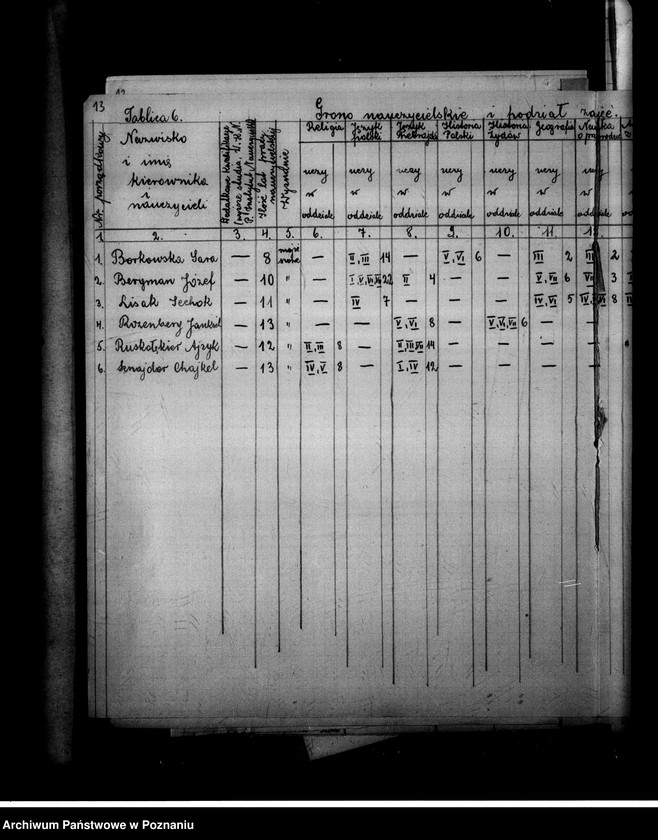 13
Tablica 6.
Grono nauczycielskie i podział zajęć.
Nr. porządkowy
Nazwisko
i imię
kierownika
i
nauczycieli
Ilość lat pracy
nauczycielskiej
Wyznanie
Religia
Język
Polski
Język
Hebrajski
Historia
Polski
Historia
Żydów
Geografia
Nauka
o przyrodzie
uczy uczy uczy uczy uczy uczy uczy
w w w w w w w
oddziale oddziale oddziale oddziale oddziale oddziale oddziale
1. 2. 3. 4. 5. 6. 7. 8. 9. 10. 11.
1. Borkowska Sara — 8 — II, III 14 — V, VI 6 — III 2 III 2
2. Bergman Józef — 10 " — I V, VI, VII 22 II 4 — — V, VII 6 VII 3
3. Lisak — 11 " — IV 7 — — — IV, VI 5 IV, VI 8
4. Rozenberg — 13 " — — V, VI 8 — V, VI, VII 6 — —
5. Ajzyk — 12 " II, III 8 — II, III, VII 14 — — — —
6. Sznajder Chajkel — 13 " IV, V 8 — I, IV 12 — — — —
Archiwum Państwowe w Poznaniu